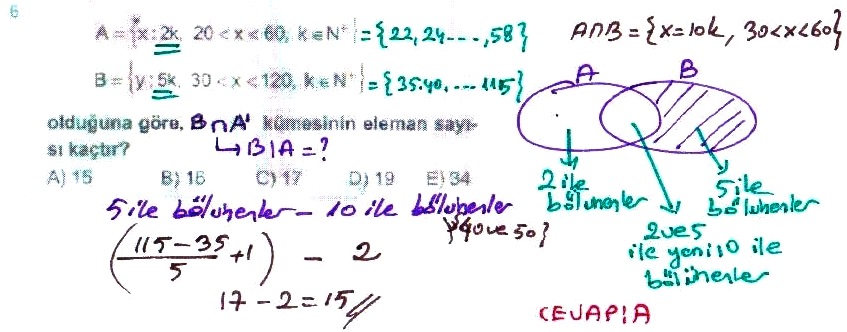 6
A = {x: 2k, 20 < x < 60, k ∈ N⁺} = {22, 24 ----, 58}
A∩B = {x = 10k, 30 < x < 60}
B = {y: 5k, 30 < x < 120, k ∈ N⁺} = {35, 40, --- 115}
A B
olduğuna göre, B ∩ A' kümesinin eleman sayı-
sı kaçtır? ↳ B \ A = ?
A) 15 B) 16 C) 17 D) 19 E) 34
2 ile bölünenler
5 ile bölünenler
2 ve 5 ile yeni 10 ile bölünenler
5 ile bölünenler – 10 ile bölünenler
{40 ve 50}
((115 – 35)/5 + 1) – 2
17 – 2 = 15 //
CEVAP | A